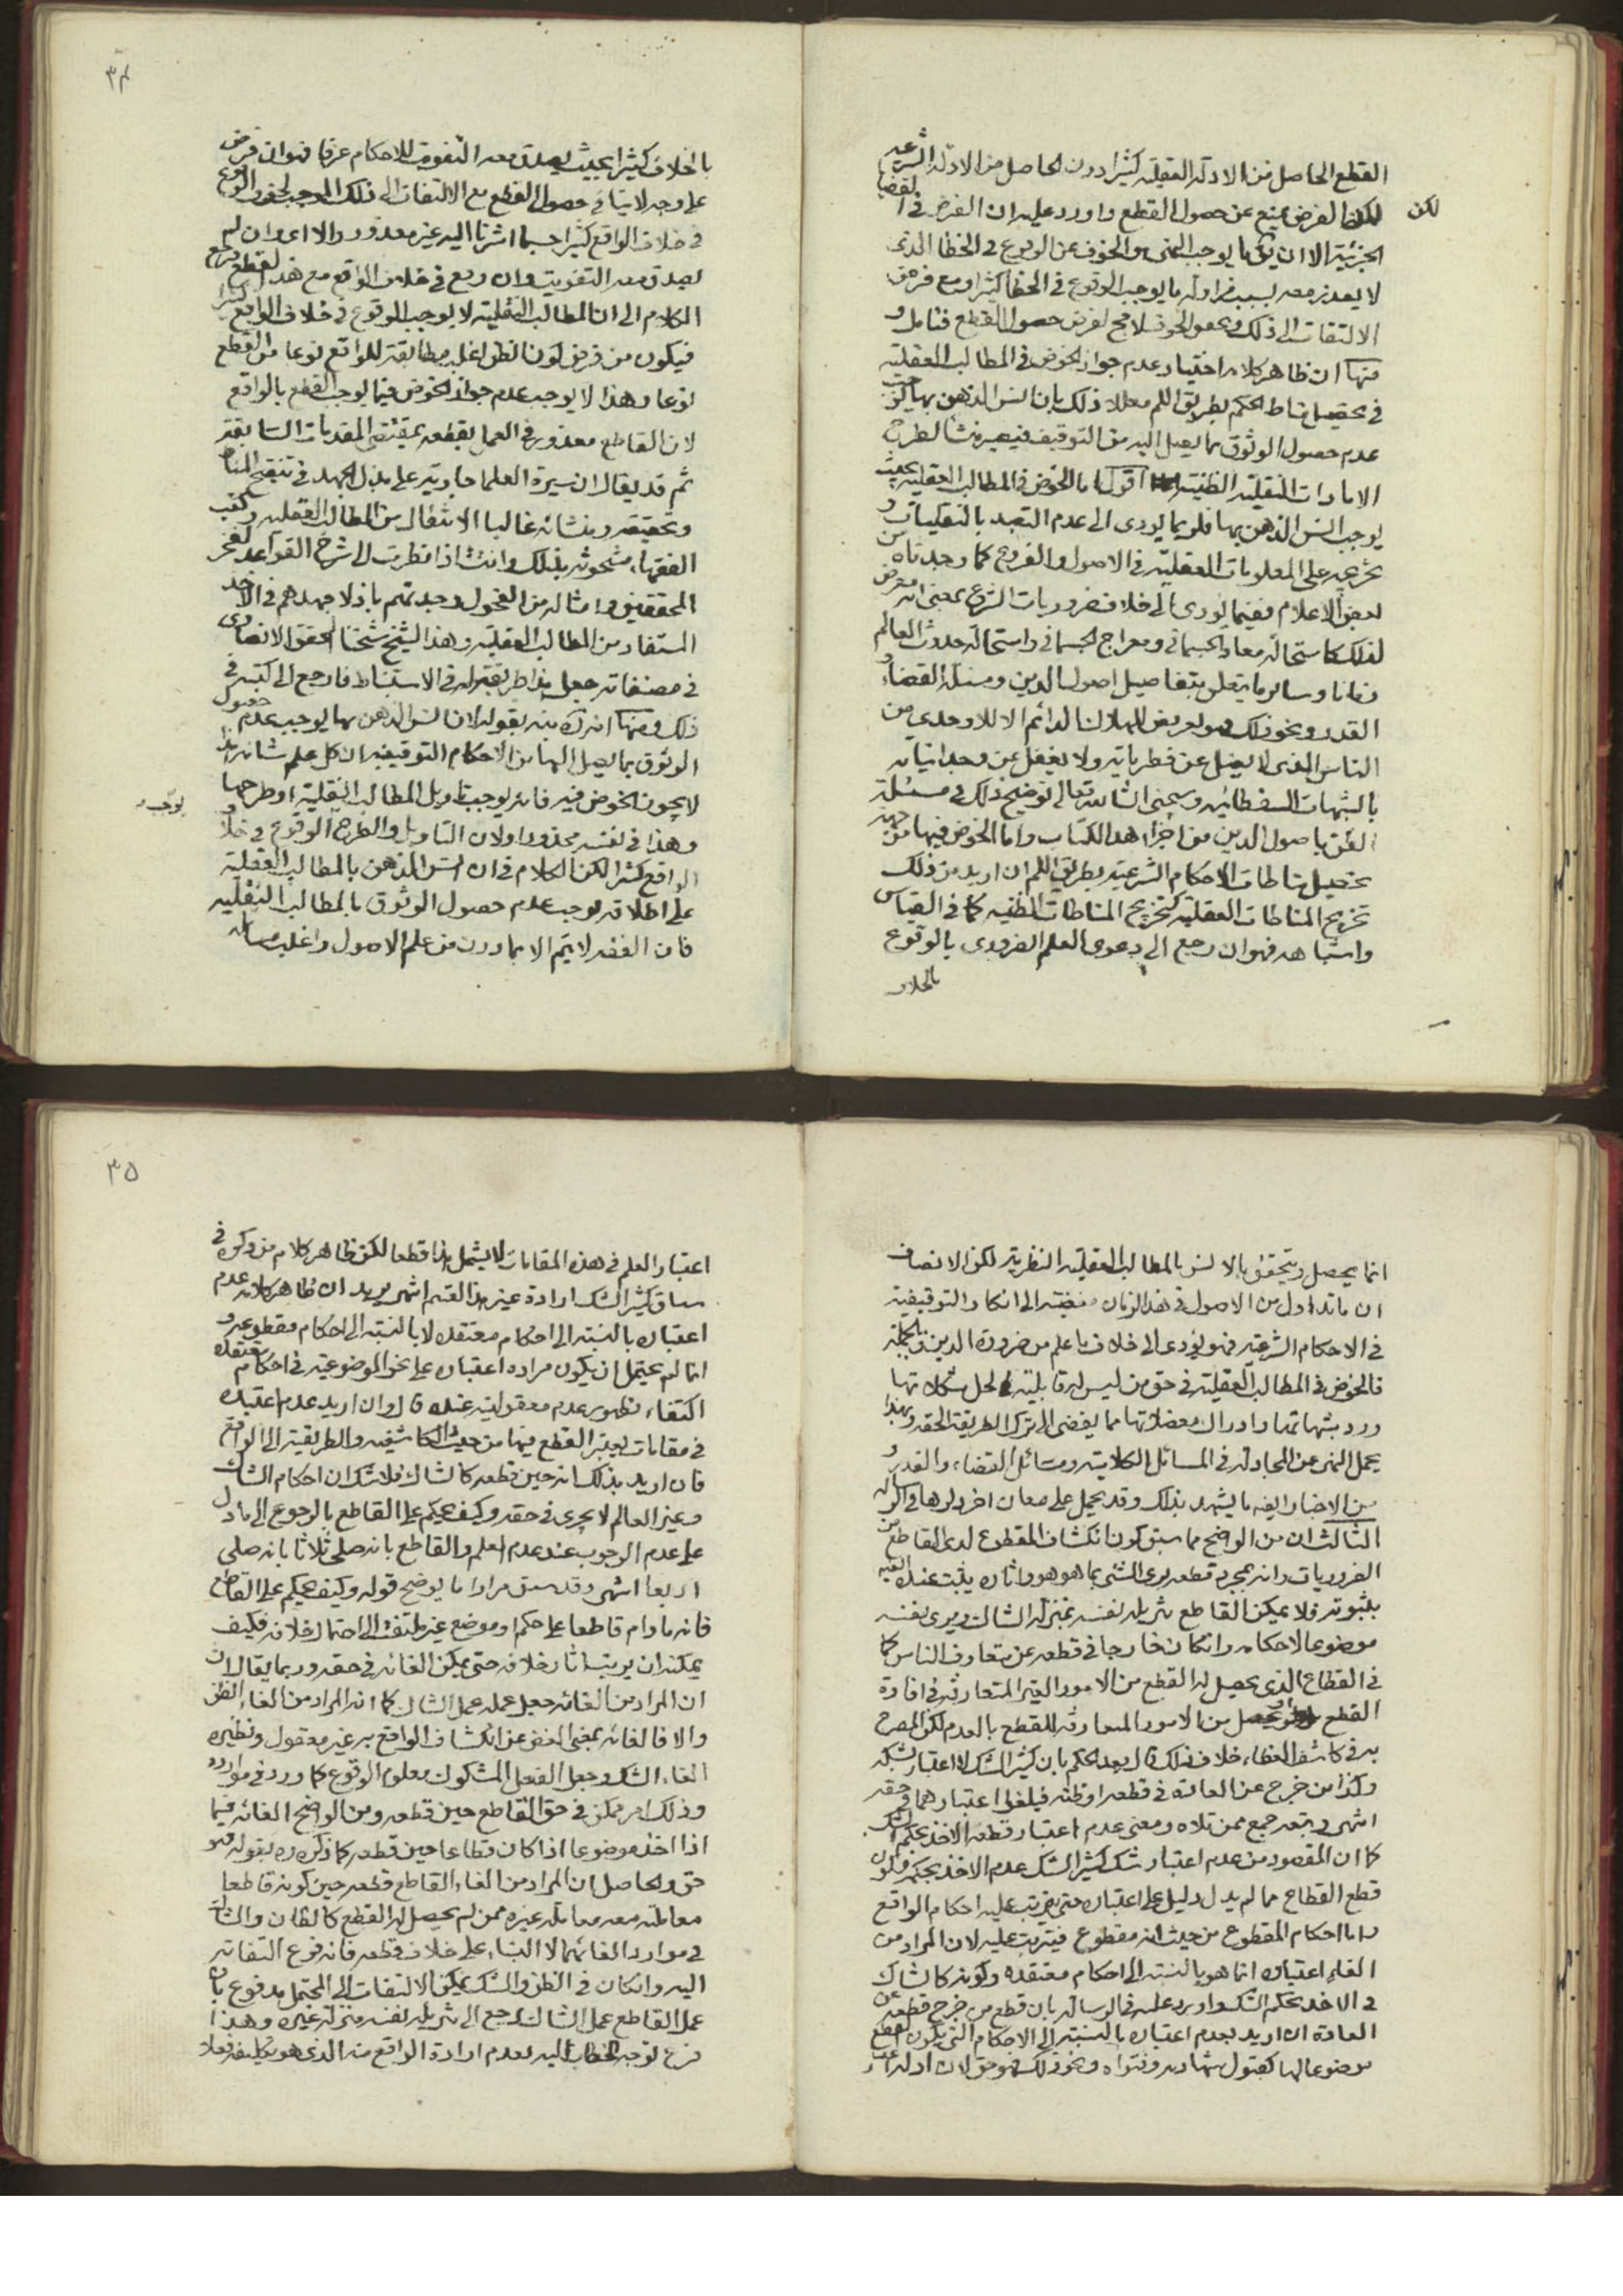 القطع الحاصل من الادلة العقلية كثيرا دون الحاصل من الادلة الشرعية
لكن الفرض يمنع عن حصول القطع واورد عليه ان الفرض في القضايا
لكن
الجزئية الا ان ما يوجب المنى والخوف عن الوقوع في الخطا الذى
لا يعذر معه بسبب مزاولة ما يوجب الوقوع في الخطا كثيرا ومع فرض
الالتفات الى ذلك وحصول الخوف لا مح لفرض حصول القطع فتامل و
منها ان ظاهر كلامه اختيار عدم جواز الخوض في المطالب العقلية
في تحصيل مناط الحكم بطريق اللم معللا ذلك بان انس الذهن بها يوجب
عدم حصول الوثوق بما يصل اليه من التوقيف فيصير منشأ لطرح
الامارات النقلية الظنية اقول اما الخوض في المطالب العقلية بحيث
يوجب انس الذهن بها فلربما يودى الى عدم التعبد بالنقليات و
عرضه على المعلومات العقلية في الاصول والفروع كما وجدناه من
بعض الاعلام فيما يودى الى خلاف ضروريات الشرع بمعنى انه معرض
لذلك كاستحالة معاد الجسماني ومعراج الجسماني واستحالة حدوث العالم
زمانا وسائر ما يتعلق بتفاصيل اصول الدين ومسئلة القضاء و
القدر ونحو ذلك فهو تعريض للهلاك الدائم الا للاوحدى من
الناس الذى لا يضل عن فطرياته ولا يغفل عن وجدانياته
بالشبهات السفسطائيه وسيجئ انشاء الله تعالى توضيح ذلك في مسئلة
الظن باصول الدين من اجزاء هذا الكتاب واما الخوض فيها من جهة
تحصيل مناطات الاحكام الشرعية بطريق اللم ان اريد من ذلك
تخريج المناطات العقلية كتخريج المناطات الظنيه كما في القياس
واشباهه فهو ان رجع الى دعوى العلم الضرورى بالوقوع
بالخلاف
٣٤
بالخلاف كثيرا بحيث يصدق معه التفويت للاحكام عرفا فهو ان فرض
على وجه لا ينافي حصول القطع مع الالتفات الى ذلك الموجب لخوف الوقوع
في خلاف الواقع كثيرا حسبما اشرنا اليه غير معذور والا اى وان لم
يصدق معه التفويت وان وقع في خلاف الواقع مع هذا القطع يرجع
الكلام الى ان المطالب النقلية لا يوجب الوقوع في خلاف الواقع كثيرا
فيكون من فرض كون الظن اغلب مطابقة للواقع نوعا من القطع
نوعا وهذا لا يوجب عدم جواز الخوض فيما يوجب القطع بالواقع
لان القاطع معذور في العمل بقطعه بمقتضى المقدمات السابقة
ثم قد يقال ان سيرة العلما جارية على بذل الجهد في تنقيح المناط
وتحقيقه ومنشائه غالبا الانتقال من المطالب العقليه وكتب
الفقهاء مشحونة بذلك وانت اذا نظرت الى شرح القواعد لفخر
المحققين وامثاله من الفحول وجدتهم باذلا جهدهم في الاخذ
المستفاد من المطالب العقلية وهذا الشيخ شيخنا المحقق الانصارى
في مصنفاته جعل هذا طريقة له في الاستنباط فارجع الى كتبه في
ذلك ومنها انه بقوله لان انس الذهن بها يوجب عدم حصول
الوثوق بما يصل اليها من الاحكام التوقيفيه ان كل علم شانه هذا
لا يجوز الخوض فيه فانه يوجب تاويل المطالب النقلية او طرحها
يوجب
وهذا في نفسه محذور اولان التاويل والطرح الوقوع في خلاف
الواقع كثيرا لكن الكلام في ان انس الذهن بالمطالب العقلية
على اطلاقه يوجب عدم حصول الوثوق بالمطالب النقليه
فان الفقه لا يتم الا بما دون من علم الاصول واغلب مسائله
انما يحصل ويتحقق بالانس بالمطالب العقلية النظرية لكن الانصاف
ان ما تداول من الاصول في هذا الزمان مفضية الى انكار التوقيفية
في الاحكام الشرعية فهو يودى الى خلاف ما علم من ضرورة الدين وبالجملة
فالخوض في المطالب العقلية في حق من ليس له قابلية لحل مشكلاتها
ورد شبهاتها وادراك معضلاتها مما يفضى الى ترك الطريقة الحقه وبهذا
يحمل النهى عن المجادلة في المسائل الكلامية ومسائل القضاء والقدر و
من الاخبار ايضه ما يشهد بذلك وقد يحمل على معان اخر
الثالث ان من الواضح مما سبق كون انكشاف المقطوع لدى القاطع من
الضروريات وانه بمجرد قطعه يرى الشئ بما هو هو واثاره يثبت عنده
بثبوته فلا يمكن القاطع تنزيل نفسه بمنزلة الشاك ويرى نفسه
موضوعا لاحكامه وان كان خارجا في قطعه عن متعارف الناس كما
في القطاع الذى يحصل له القطع من الامور الغير المتعارفة في افادة
القطع ويحصل من الامور المتعارفه للقطع بالعدم لكن المصرح
به في كاشف الغطاء خلاف ذلك قال بعد الحكم بان كثير الشك لا اعتبار بشكه
وكذا من خرج عن العادة في قطعه او ظنه فيلغى اعتبارهما في حقه
انتهى وتبعه جمع ممن تلاه ومعنى عدم اعتبار قطعه الاخذ بحكم الشك
كما ان المقصود من عدم اعتبار شك كثير الشك عدم الاخذ بحكمه فيكون
قطع القطاع مما لم يدل دليل على اعتباره حتى يترتب عليه احكام الواقع
واما احكام المقطوع من حيث انه مقطوع فيترتب عليه لان المراد من
الغاء اعتباره انما هو بالنسبة الى احكام معتقده وكونه كالشاك
في الاخذ بحكم الشك واورد عليه في الرسالة بان قطع من خرج قطعه عن
العادة ان اريد بعدم اعتباره بالنسبة الى الاحكام التي يكون القطع
موضوعا لها كقبول شهادته وفتواه ونحو ذلك فهو حق لان ادلة
٣٥
اعتبار العلم في هذه المقامات لا يشمل هذا قطعا لكن ظاهر كلام من ذكره في
مساق كثير الشك ارادة غير هذا القسم انتهى يريد ان ظاهر كلامه عدم
اعتباره بالنسبة الى احكام معتقده لا بالنسبة الى احكام مقطوعه و
انما لم يحتمل ان يكون مراده اعتباره على نحو الموضوعية في احكام معتقده
اكتفاء بظهور عدم معقوليته عنده قال وان اريد عدم اعتباره
في مقامات يعتبر القطع فيها من حيث الكاشفيه والطريقية الى الواقع
فان اريد بذلك انه حين قطعه كالشاك فلا شك ان احكام الشاك
وغير العالم لا يجرى في حقه وكيف يحكم على القاطع بالرجوع الى ما دل
على عدم الوجوب عند عدم العلم والقاطع بانه صلى ثلاثا بانه صلى
اربعا انتهى وقد سبق مرارا ما يوضح قوله وكيف يحكم على القاطع
فانه ما دام قاطعا على حكم او موضع غير ملتفت الى احتمال خلافه فكيف
يمكنه ان يرتب اثار خلافه حتى يمكن الغائه في حقه وربما يقال ان
ان المراد من الغائه جعل عمله عمل الشاك كما انه المراد من الغاء الظن
والا فالغائه بمعنى الغض عن انكشاف الواقع به غير معقول ونظيره
الغاء الشك وجعل الفعل المشكوك معلوم الوقوع كما ورد في موارده
وذلك امر ممكن في حق القاطع حين قطعه ومن الواضح الغائه فيما
اذا اخذ موضوعا اذا كان قطاعا حين قطعه كما ذكره ره بقوله فهو
حق والحاصل ان المراد من الغاء القاطع قطعه حين كونه قاطعا
معاملته معه معاملة غيره ممن لم يحصل له القطع كالظان والشاك
في موارد الغائهما لا البناء على خلاف قطعه فانه فرع التفاته
اليه وان كان في الظن والشك يمكن الالتفات الى المحتمل مدفوع بان
عمل القاطع عمل الشاك راجع الى تنزيل نفسه منزلة غيره وهذا
فرع توجه الخطاب اليه بعدم ارادة الواقع منه الذى هو تكليفه فعلا